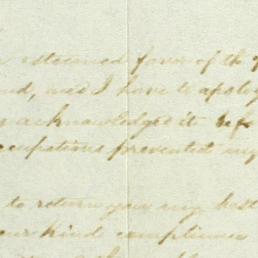 esteemed favor of the
and, and I have to apolog
acknowledged it
ccupations prevented my
to return you my best
our kind compliance